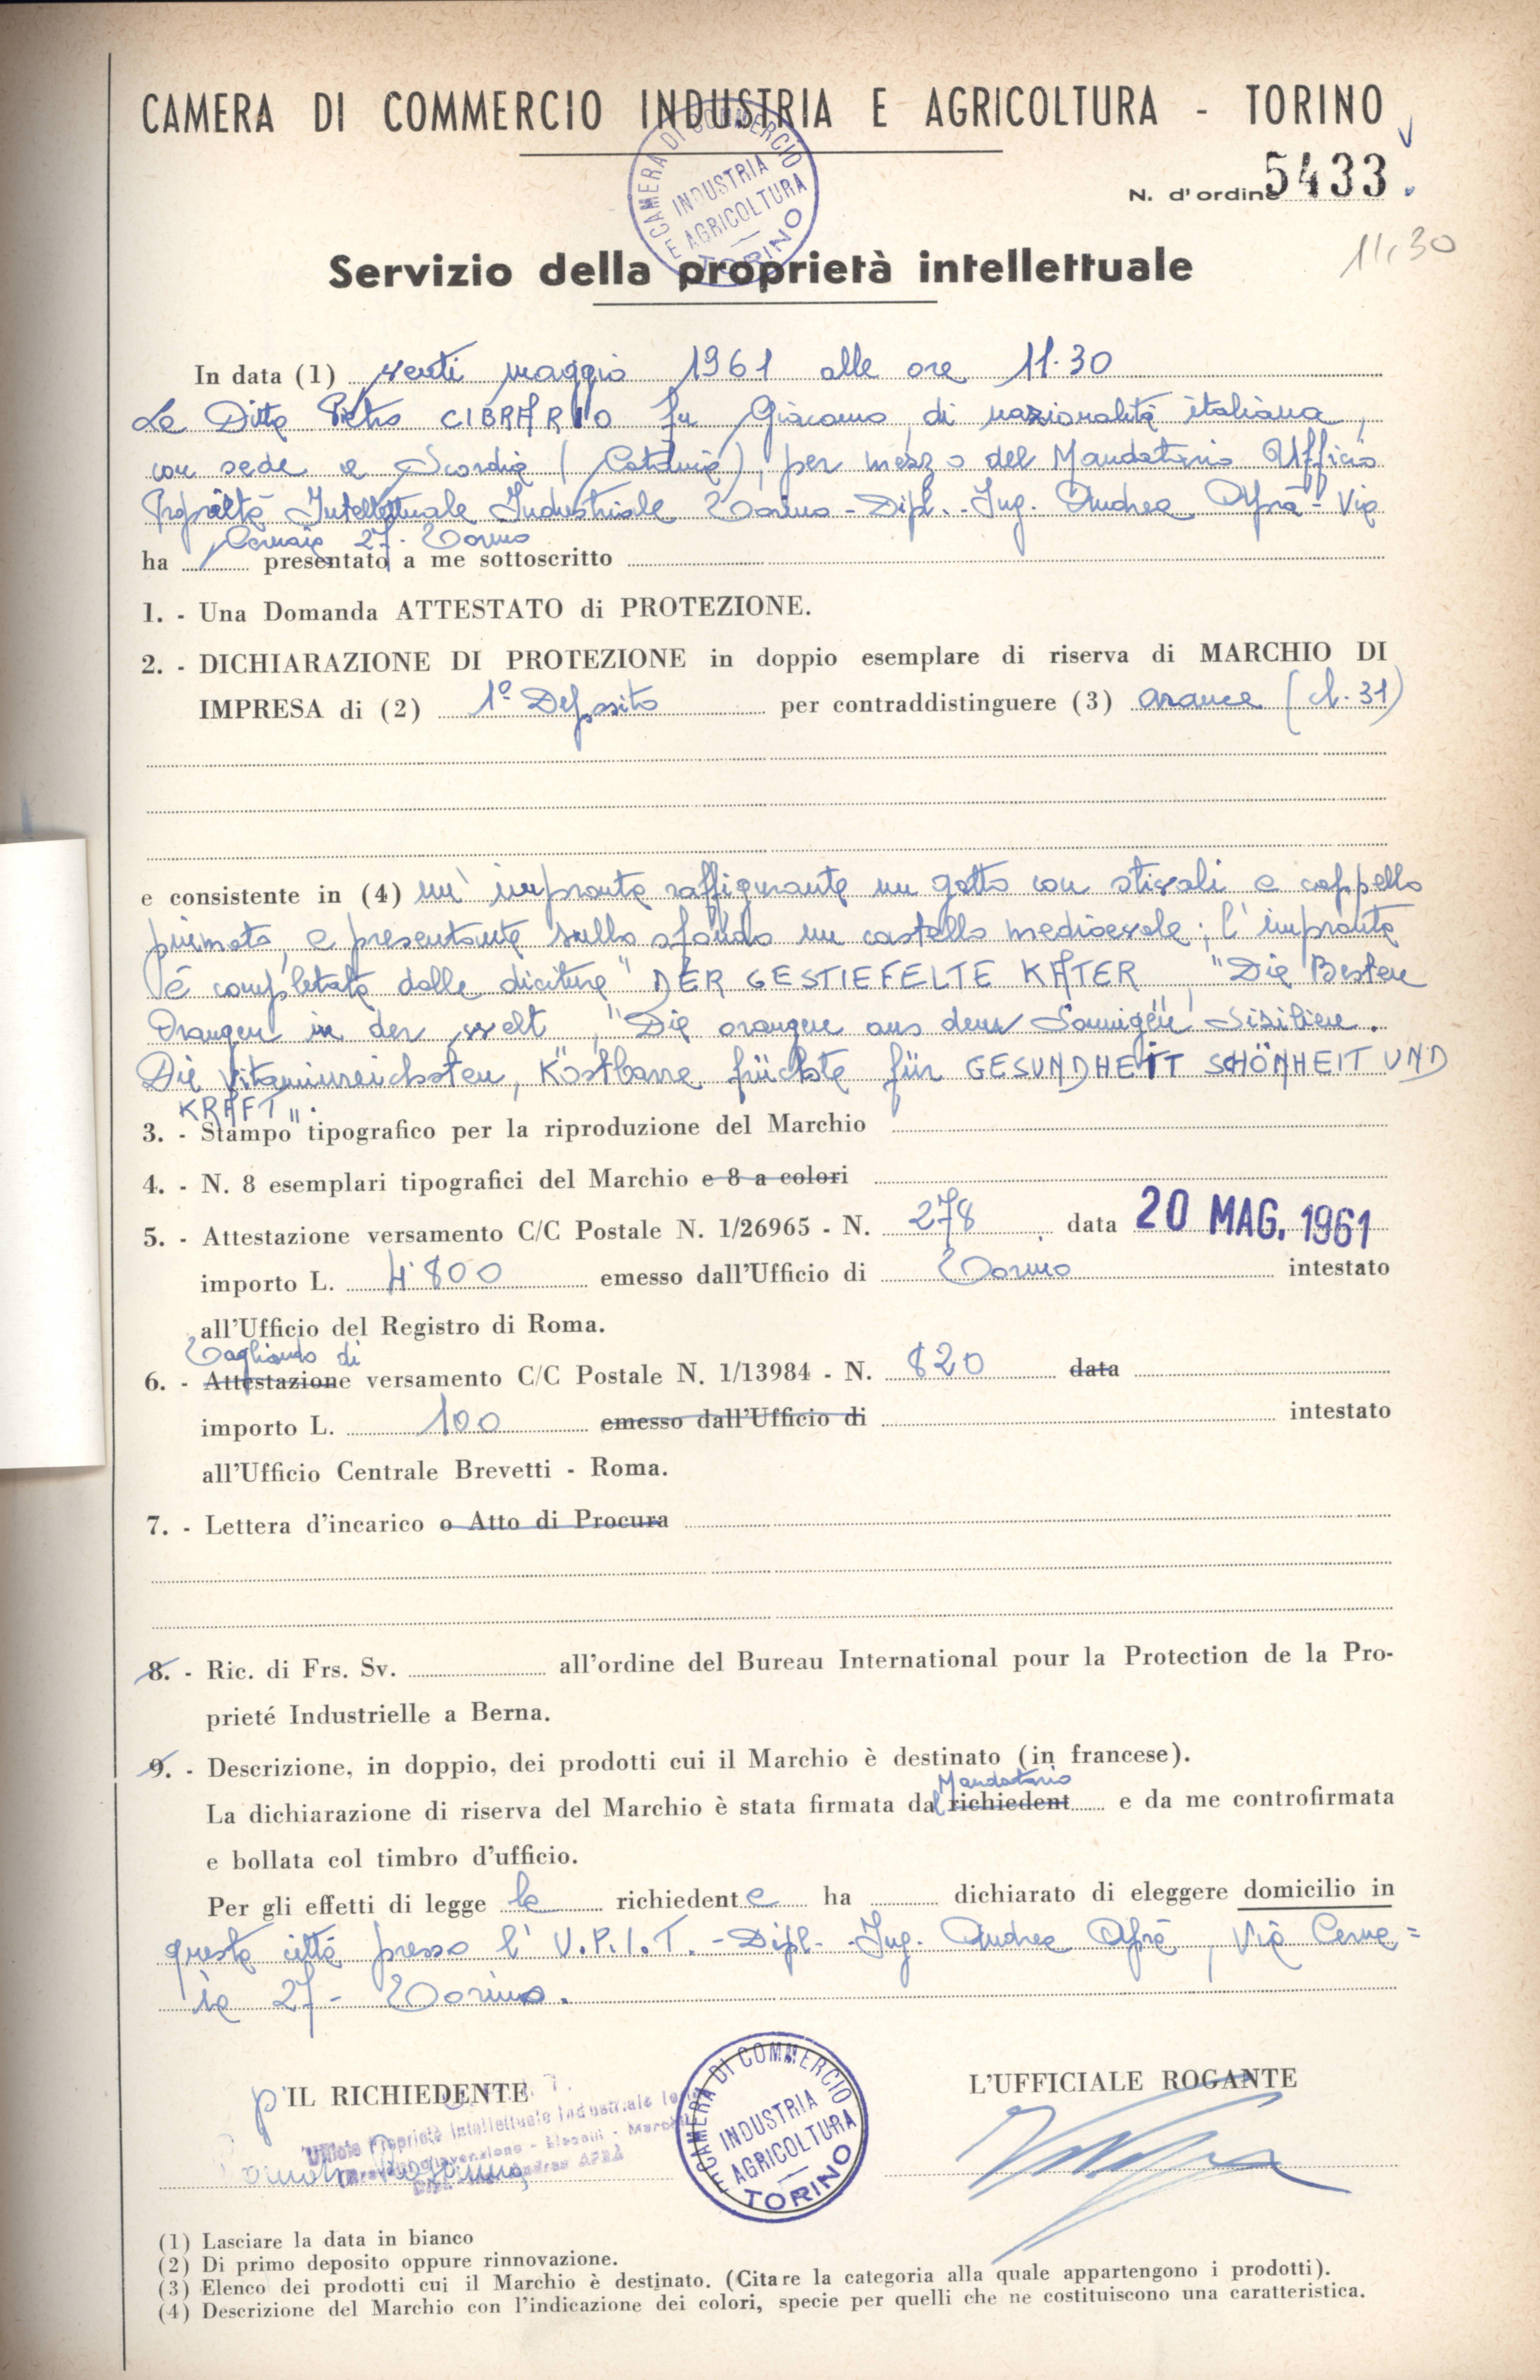 CAMERA DI COMMERCIO INDUSTRIA E AGRICOLTURA - TORINO
CAMERA DI COMMERCIO INDUSTRIA E AGRICOLTURA TORINO
N. d'ordine 5433
11,30
Servizio della proprietà intellettuale
In data (1) venti maggio 1961 alle ore 11.30
La Ditta Pietro CIBRARIO fu Giacomo, di nazionalità italiana,
con sede a Scordia (Catania), per mezzo del Mandatario Ufficio
Proprietà Intellettuale Industriale Torino - Dipl. - Ing. Andrea Aprà - Via
Cernaia 27 - Torino
ha presentato a me sottoscritto
1. - Una Domanda ATTESTATO di PROTEZIONE.
2. - DICHIARAZIONE DI PROTEZIONE in doppio esemplare di riserva di MARCHIO DI
IMPRESA di (2) 1° Deposito per contraddistinguere (3) arance (cl. 31)
e consistente in (4) un'impronta raffigurante un gatto con stivali e cappello
piumato, e presentante sullo sfondo un castello medioevale; l'impronta
è completata dalle diciture "DER GESTIEFELTE KATER, "Die Besten
Orangen in der welt, "Die orangen aus dem Sonnigen Sizilien.
Die Vitaminreichsten, Köstbare früchte für GESUNDHEIT SCHÖNHEIT UND
KRAFT".
3. - Stampo tipografico per la riproduzione del Marchio
4. - N. 8 esemplari tipografici del Marchio e 8 a colori
5. - Attestazione versamento C/C Postale N. 1/26965 - N. 278 data 20 MAG. 1961
importo L. 4.800 emesso dall'Ufficio di Torino intestato
all'Ufficio del Registro di Roma.
Tagliando di
6. - Attestazione versamento C/C Postale N. 1/13984 - N. 820 data
importo L. 100 emesso dall'Ufficio di intestato
all'Ufficio Centrale Brevetti - Roma.
7. - Lettera d'incarico o Atto di Procura
8. - Ric. di Frs. Sv. all'ordine del Bureau International pour la Protection de la Pro-
prieté Industrielle a Berna.
9. - Descrizione, in doppio, dei prodotti cui il Marchio è destinato (in francese).
Mandatario
La dichiarazione di riserva del Marchio è stata firmata dal richiedent e da me controfirmata
e bollata col timbro d'ufficio.
Per gli effetti di legge la richiedente ha dichiarato di eleggere domicilio in
questa città presso l'U.P.I.T. - Dipl. - Ing. Andrea Aprà, Via Cerna=
ia 27 - Torino.
p. IL RICHIEDENTE
L'UFFICIALE ROGANTE
Ufficio Proprietà Intellettuale Industriale
Andrea APRÀ
CAMERA DI COMMERCIO INDUSTRIA E AGRICOLTURA TORINO
(1) Lasciare la data in bianco
(2) Di primo deposito oppure rinnovazione.
(3) Elenco dei prodotti cui il Marchio è destinato. (Citare la categoria alla quale appartengono i prodotti).
(4) Descrizione del Marchio con l'indicazione dei colori, specie per quelli che ne costituiscono una caratteristica.